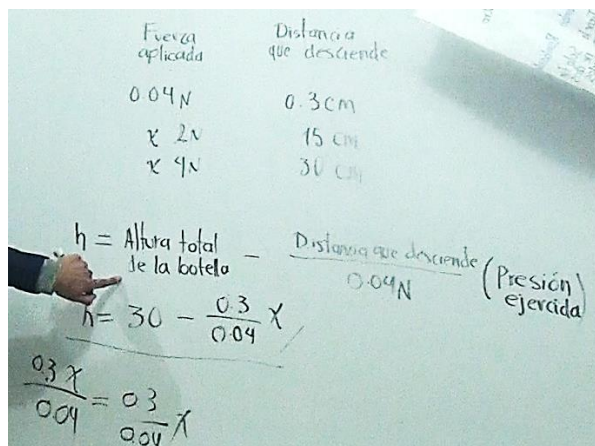 Fuerza aplicada
Distancia que desciende
0.04N 0.3cm
x 2N 15 cm
x 4N 30 cm
h = Altura total de la botella - Distancia que desciende / 0.04N (Presión ejercida)
h = 30 - 0.3/0.04 x
0.3x/0.04 = 0.3/0.04 x